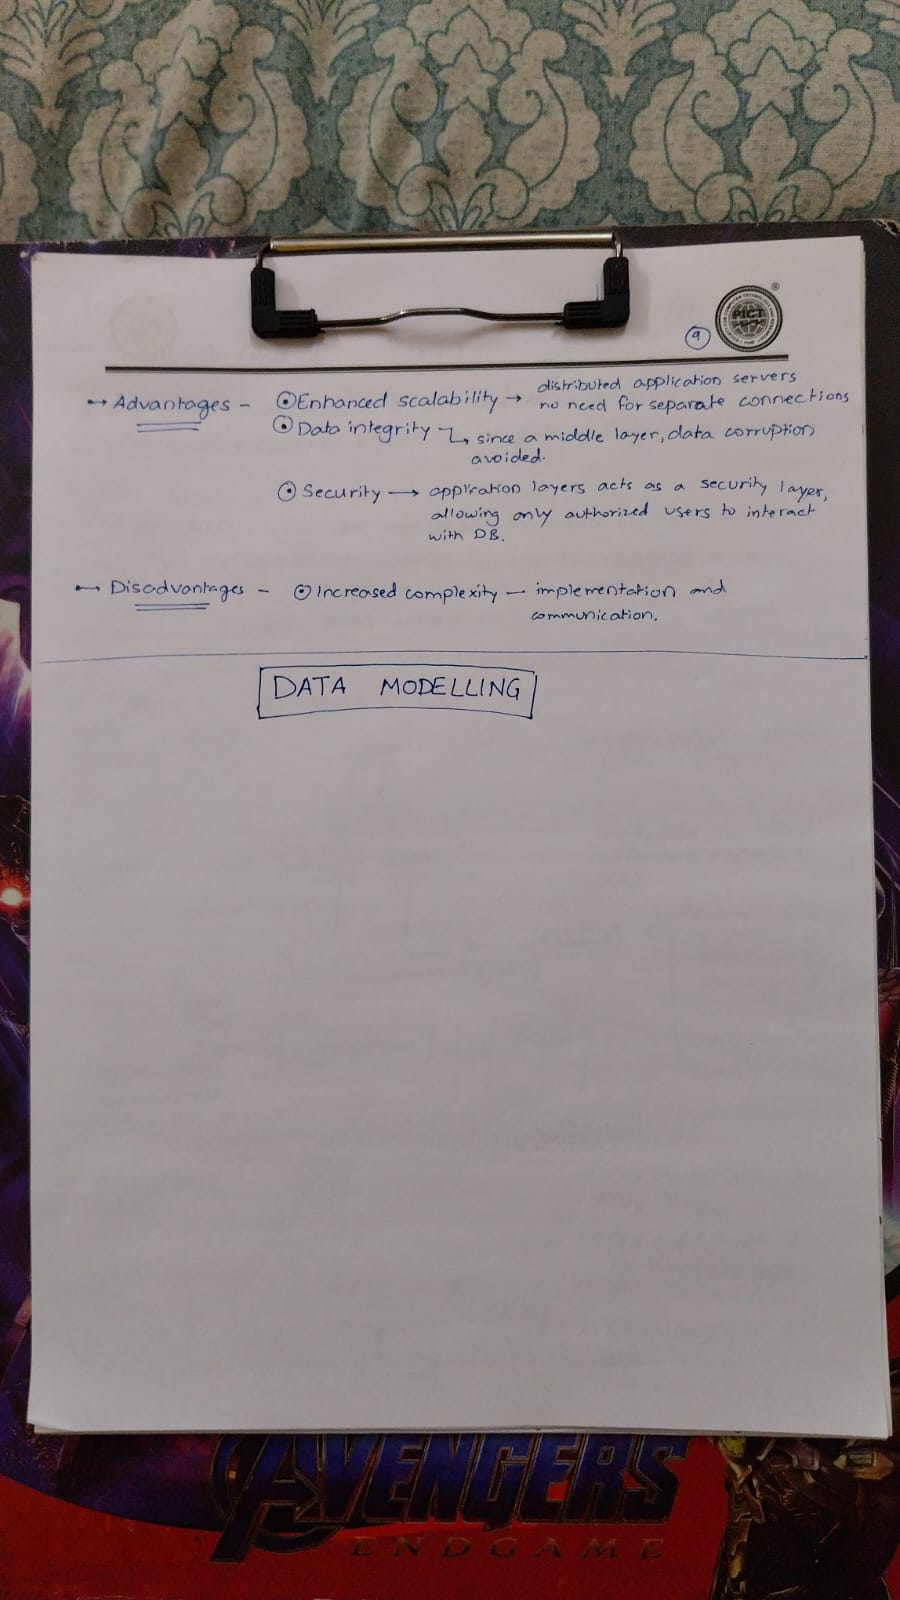 9
PICT
→ Advantages - ⊙ Enhanced scalability → distributed application servers
no need for separate connections
⊙ Data integrity ↳ since a middle layer, data corruption
avoided.
⊙ Security → application layers acts as a security layer,
allowing only authorized users to interact
with DB.
→ Disadvantages - ⊙ Increased complexity - implementation and
communication.
DATA MODELLING
AVENGERS
ENDGAME